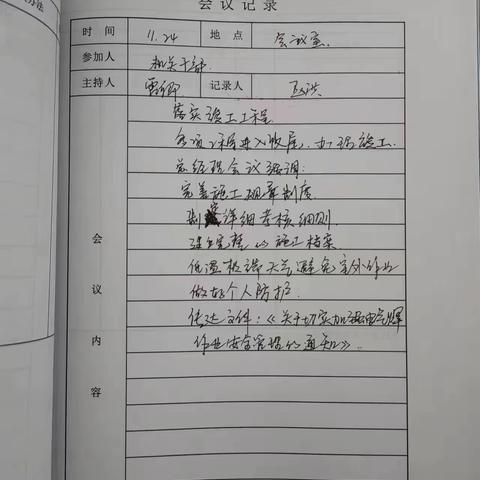 办法
会议记录
时间 11.24 地点 会议室
参加人 机关干部
主持人 记录人
落实竣工工程
各项工程进入收尾，加强竣工
总经理会议强调：
完善施工规章制度
制定详细考核细则
建立完整的施工档案
低温极端天气避免室外作业
做好个人防护.
传达文件：《关于切实加强电气焊
作业安全管理的通知》.
会议内容